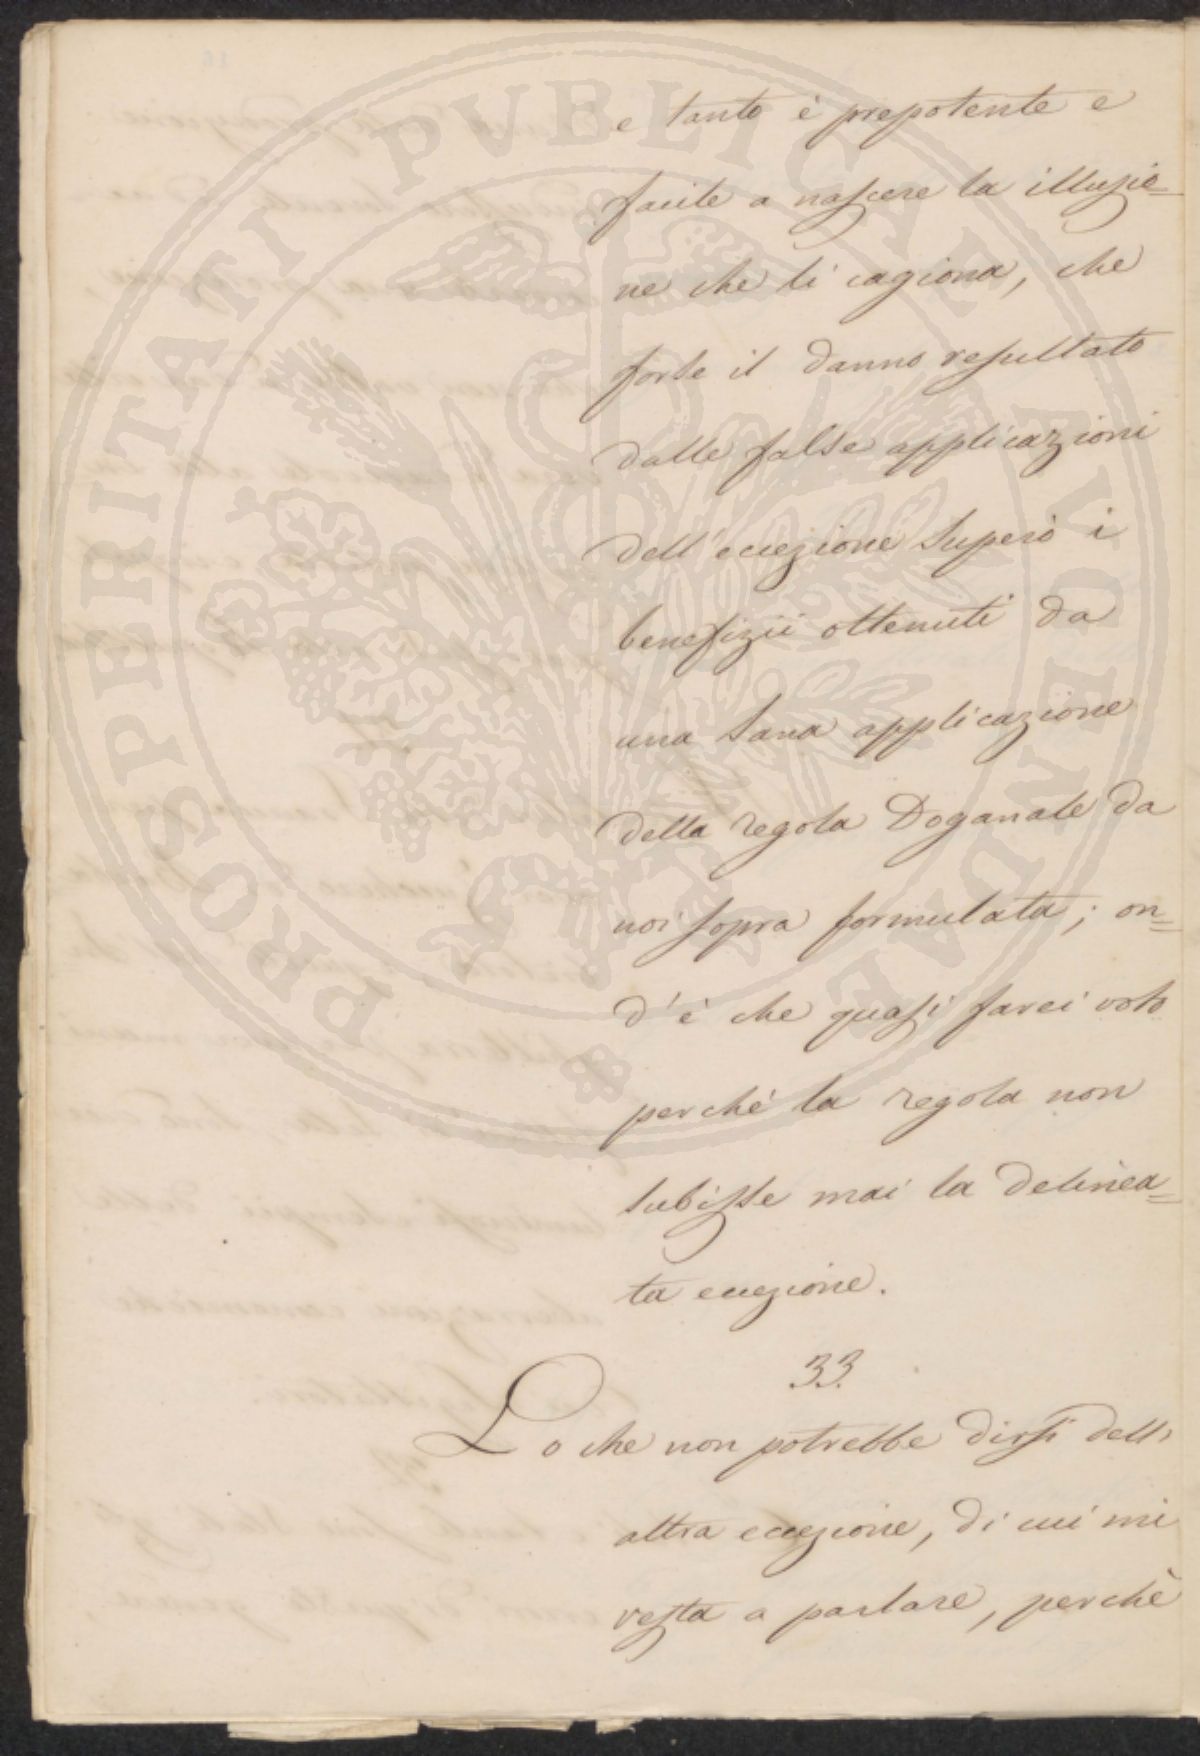 e tanto è prepotente e
facile a nascere la illusio=
ne che li cagiona, che
forse il danno resultato
dalle false applicazioni
dell'eccezione superò i
benefizii ottenuti da
una sana applicazione
della regola Doganale da
noi sopra formulata; on=
d'è che quasi farei voto
perchè la regola non
subisse mai la delinea=
ta eccezione.
33.
Lo che non potrebbe dirsi dell'
altra eccezione, di cui mi
resta a parlare, perchè
PROSPERITATI PVBLICAE AVGENDAE